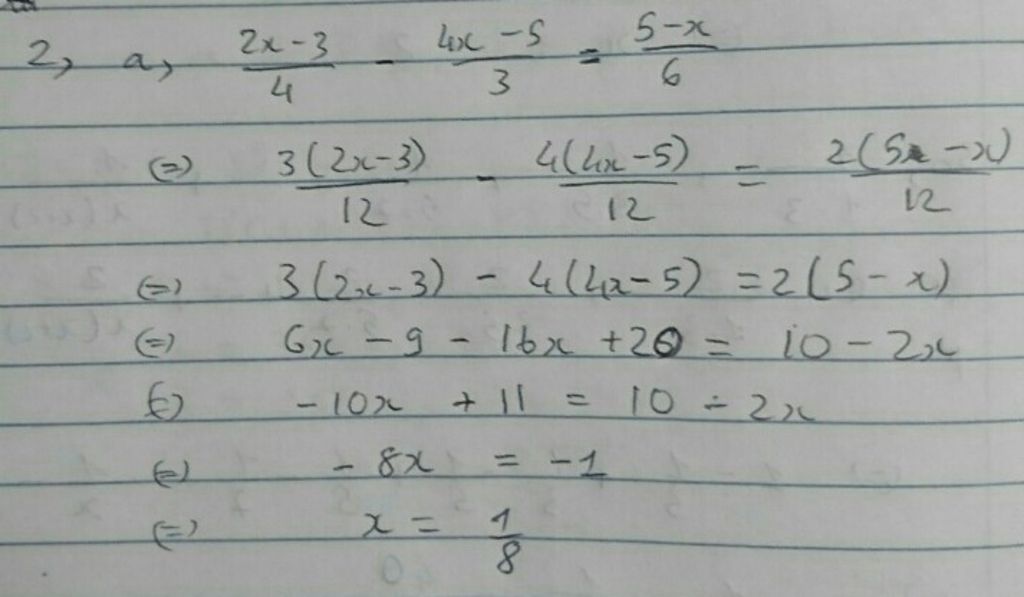 2, a, (2x-3)/4 - (4x-5)/3 = (5-x)/6
(=) 3(2x-3)/12 - 4(4x-5)/12 = 2(5-x)/12
(=) 3(2x-3) - 4(4x-5) = 2(5-x)
(=) 6x - 9 - 16x + 20 = 10 - 2x
(=) -10x + 11 = 10 - 2x
(=) -8x = -1
(=) x = 1/8